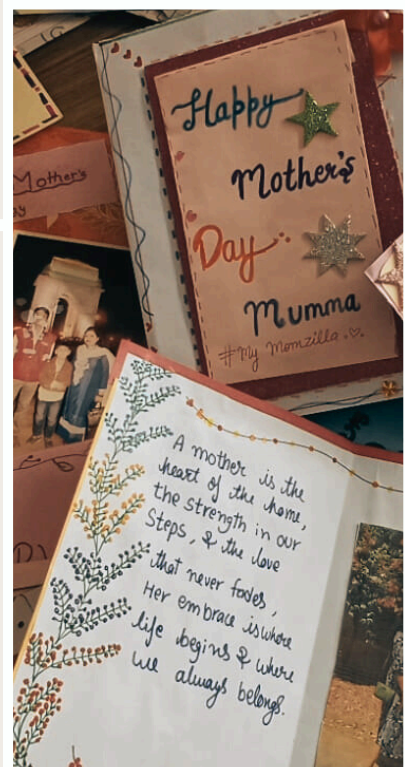 Mother's
Happy
Mother's
Day
Mumma
#My Momzilla.
A mother is the
heart of the home,
the strength in our
Steps, & the love
that never fades,
Her embrace is where
life begins & where
we always belongs.